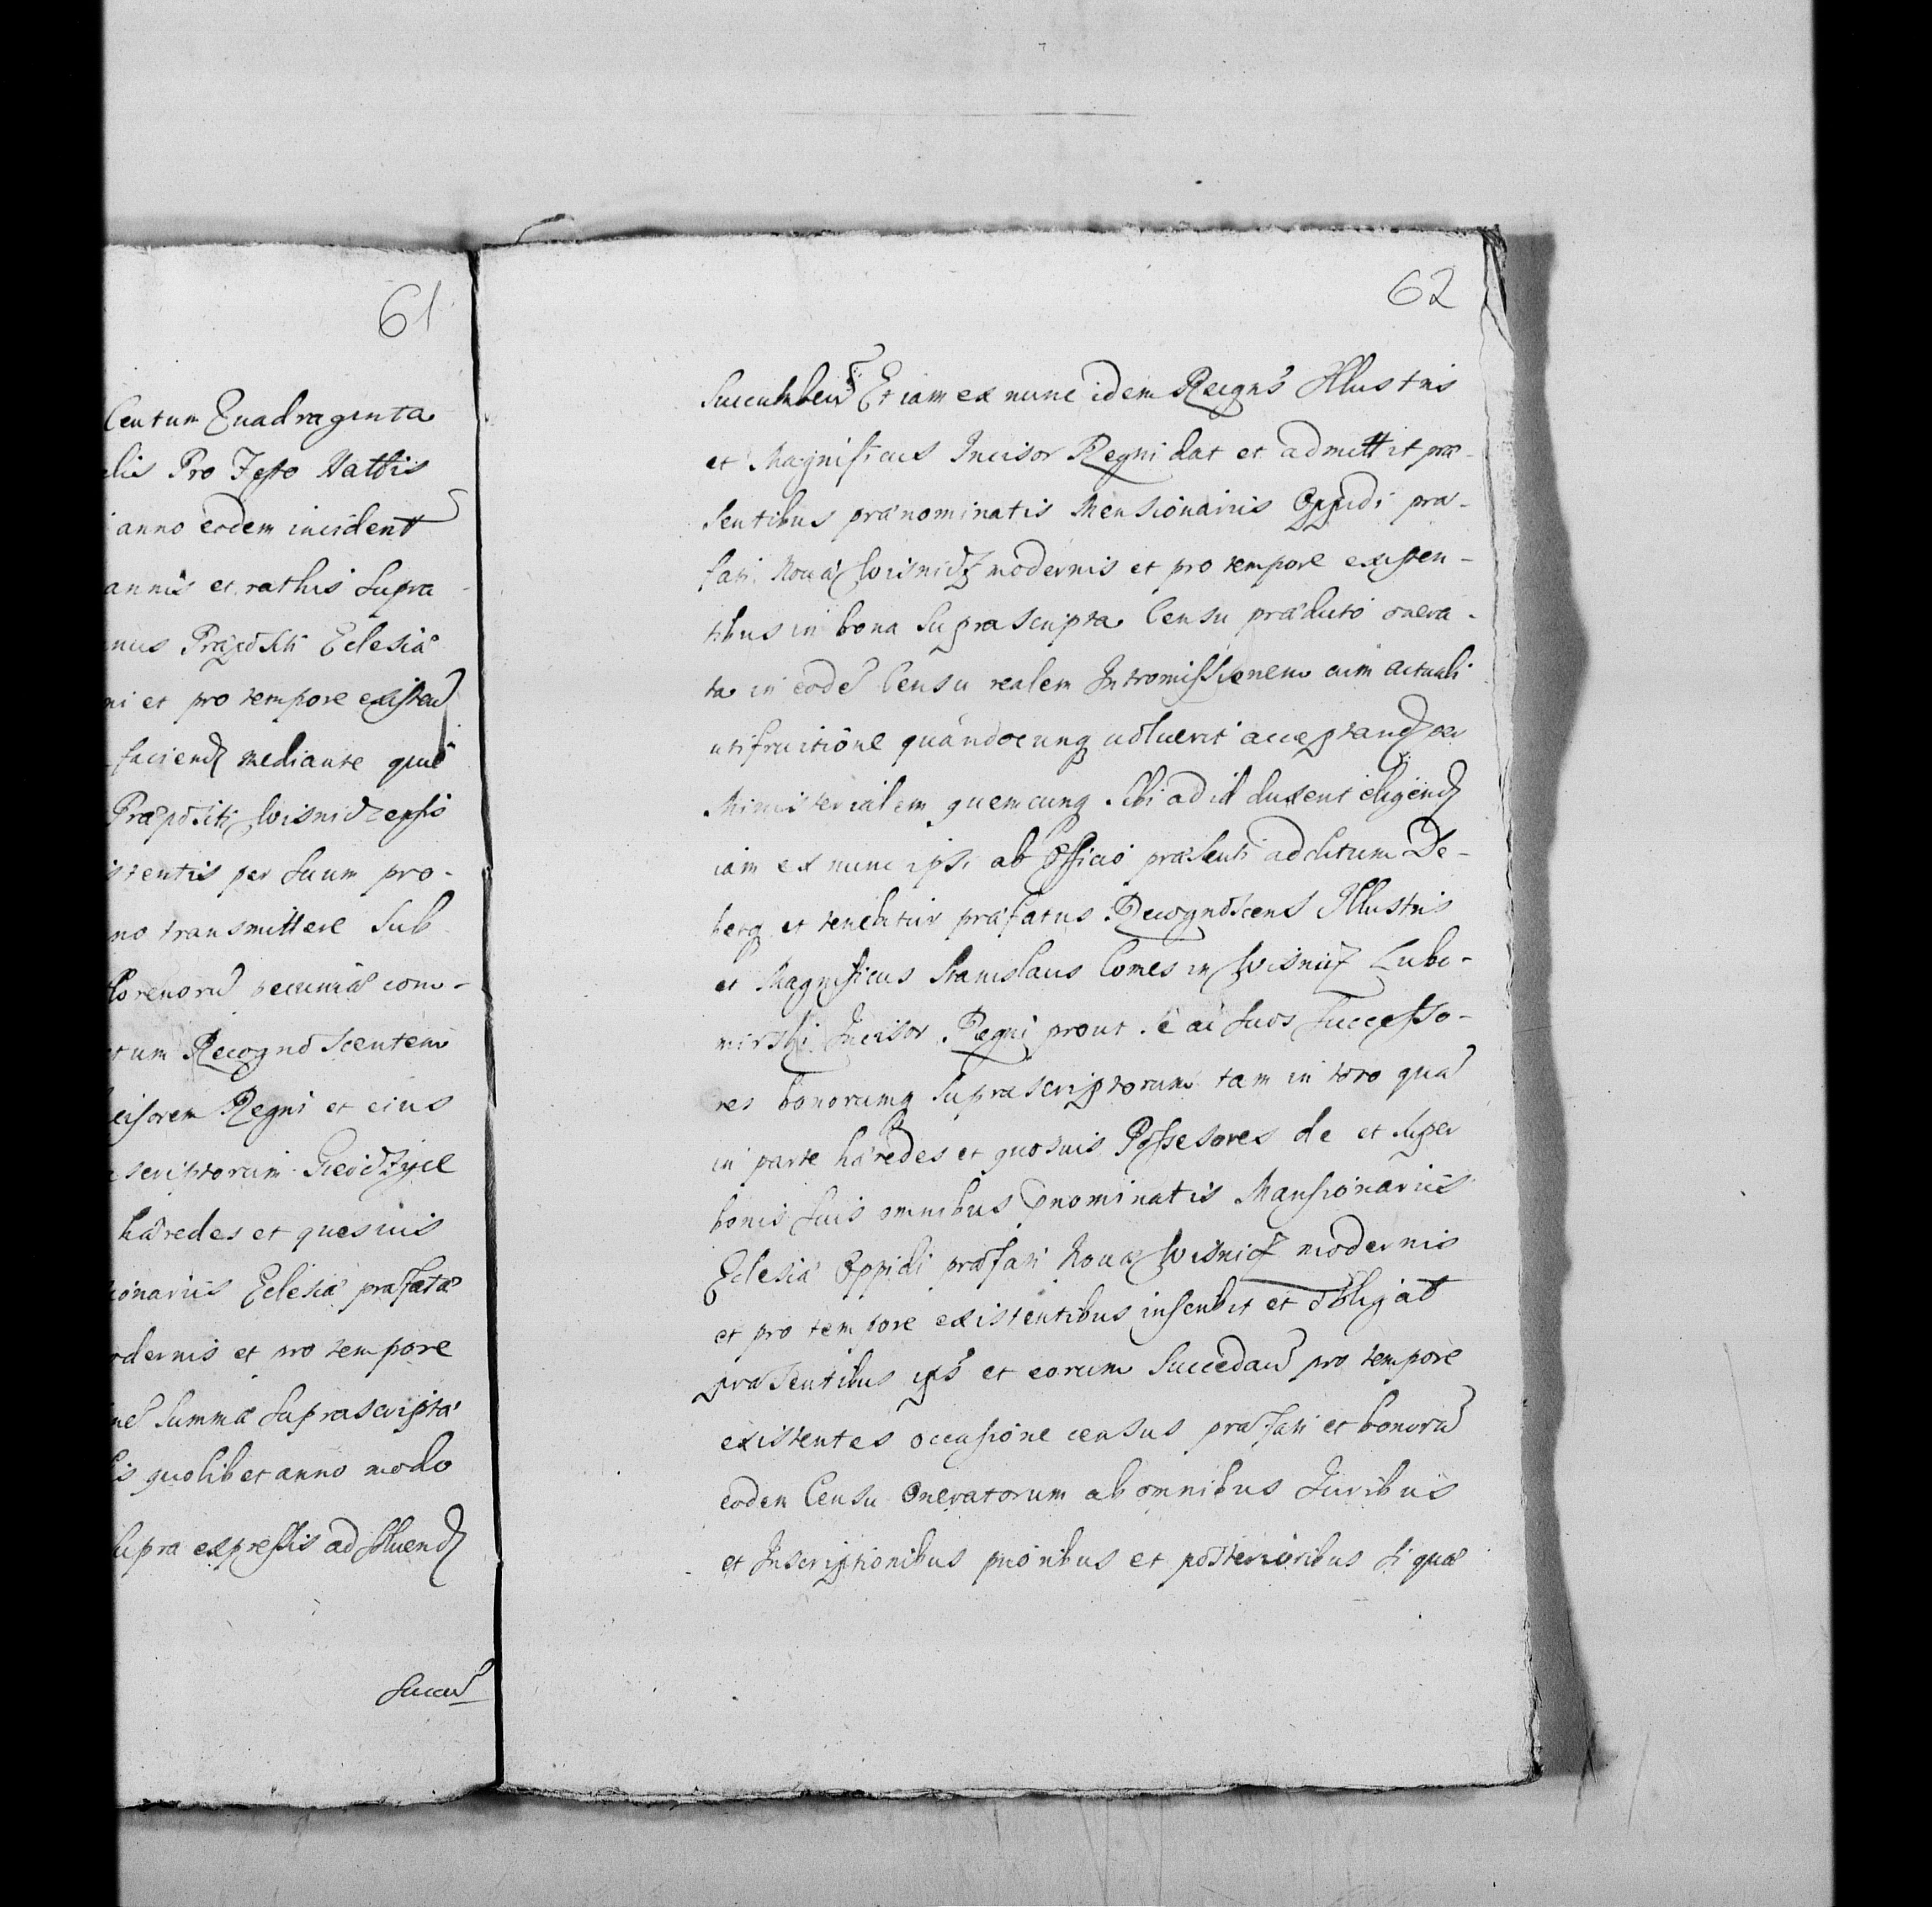 61
Centum Quadraginta
alis Pro Festo Nattis
anno eodem incident
annis et rathis supra
mus Præpositi Eclesiæ
ni et pro tempore existen
faciend mediante que
Præpositi Wisnidzensis
istentis per suum pro-
no transmittere sub
florenoru pecuniæ com-
tum Recognoscentem
cisorem Regni et eius
scriptorum
hæredes et quosuis
ionariis Eclesiæ præfatæ
odernis et pro tempore
ne summæ suprascriptæ
is quolibet anno modo
supra expressis ad soluend
succu
62
succumben Et iam ex nunc idem Recgns Illustris
et Magnificus Incisor Regni dat et admittit præ-
sentibus prænominatis Mensionariis Oppidi præ-
fati Nouæ Wisnidz modernis et pro tempore existen-
tibus in bona suprascripta Censu præducto onera-
ta in eode Censu realem Intromissionem cum actuali
utifruitione quandocunq uoluerit acceptand per
Ministerialem quemcunq sibi ad id duxerit eligend
iam ex nunc ipsi ab Officio præsenti additum De-
betq et tenebitur præfatus Recognoscens Illustris
et Magnificus Stanislaus Comes in Wisnicz Lubo-
mirski Incisor Regni prout se ac suos successo-
res bonorumq suprascriptorum tam in toto qua
in parte hæredes et quosuis Possesores de et super
bonis suis omnibus pnominatis Mansionariis
Eclesiæ Oppidi præfati Nouæ Wisnicz modernis
et pro tempore existentibus inscribit et obligat
præsentibus ips et eorum succedan pro tempore
existentes occasione census præfati et bonoru
eodem Censu Oneratorum ab omnibus Iuribus
et Inscriptionibus prioribus et posterioribus si quæ